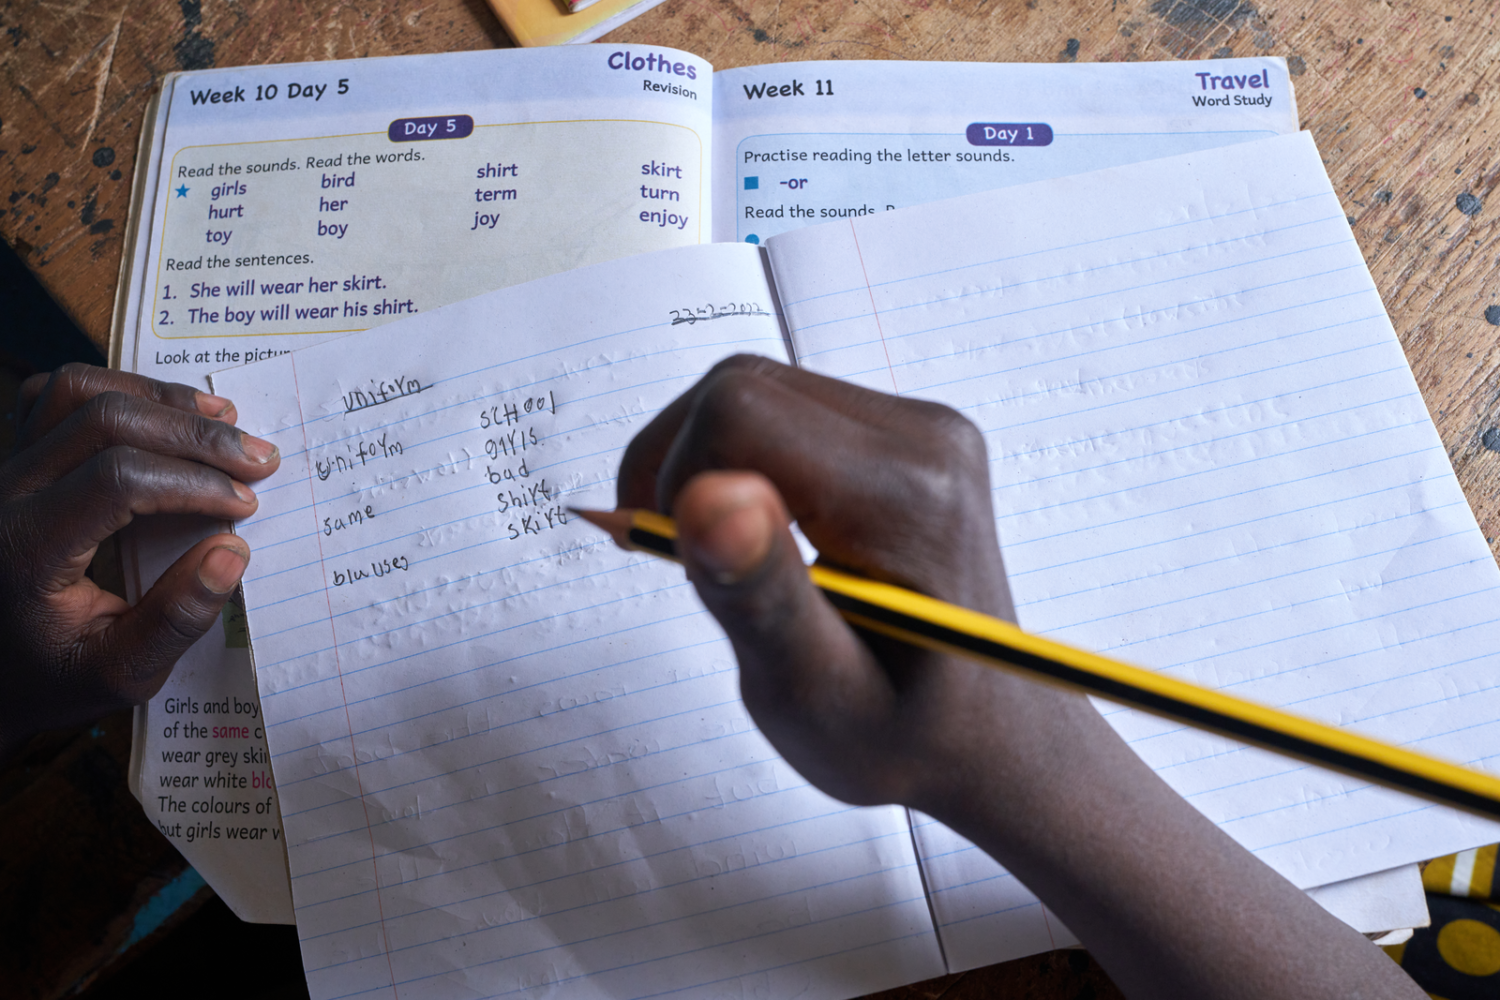 Week 10 Day 5
Clothes
Revision
Day 5
Read the sounds. Read the words.
girls bird shirt skirt
hurt her term turn
toy boy joy enjoy
Read the sentences.
1. She will wear her skirt.
2. The boy will wear his shirt.
Look at the
Girls and boy
of the same c
wear grey
wear white
The colours of
but girls wear
Week 11
Travel
Word Study
Day 1
Practise reading the letter sounds.
-or
Read the sounds
uniform
uniform
same
bluuses
SCHOOl
girls.
bad
Shirt
skirt